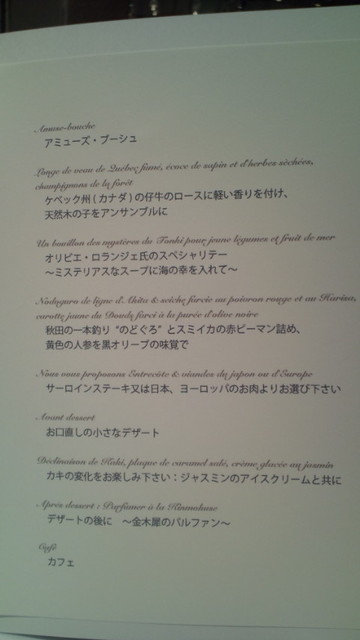 Amuse-bouche
アミューズ・ブーシュ
Longe de veau de Québec fumé, écoce de sapin et d'herbes séchées,
champignons de la forêt
ケベック州(カナダ)の仔牛のロースに軽い香りを付け、
天然木の子をアンサンブルに
Un bouillon des mystères du Tonki pour jeune légumes et fruit de mer
オリビエ・ロランジェ氏のスペシャリテー
〜ミステリアスなスープに海の幸を入れて〜
Nodoguro de ligne d'Akita & seiche farcie au poivron rouge et au Harissa,
carotte jaune du Doubs farci à la purée d'olive noire
秋田の一本釣り “のどぐろ” とスミイカの赤ピーマン詰め、
黄色の人参を黒オリーブの味覚で
Nous vous proposons Entrecôte & viandes du japon ou d'Europe
サーロインステーキ又は日本、ヨーロッパのお肉よりお選び下さい
Avant dessert
お口直しの小さなデザート
Déclinaison de Kaki, plaque de caramel salé, crème glacée au jasmin
カキの変化をお楽しみ下さい：ジャスミンのアイスクリームと共に
Après dessert : Parfumer à la Kinmokuse
デザートの後に 〜金木犀のパルファン〜
Café
カフェ